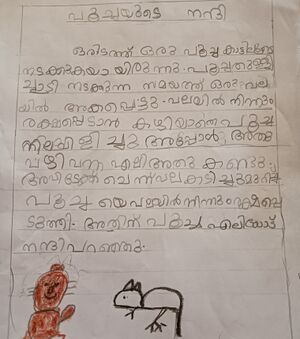 പൂച്ചയുടെ നന്ദി
ഒരിടത്ത് ഒരു പൂച്ച കാട്ടിലൂടെ
നടക്കുകയായിരുന്നു. പൂച്ച തുള്ളി
ച്ചാടി നടക്കുന്ന സമയത്ത് ഒരു വല
യിൽ അകപ്പെട്ടു. വലയിൽ നിന്നും
രക്ഷപ്പെടാൻ കഴിയാതെ പൂച്ച
നിലവിളിച്ചു അപ്പോൾ, അതു
വഴി വന്ന എലി അതു കണ്ടു.
അവിടേക്ക് ചെന്ന് വല കടിച്ചു മുറിച്ച്
പൂച്ചയെ വലയിൽ നിന്നും രക്ഷപ്പെ
ടുത്തി. അതിന് പൂച്ച എലിയോട്
നന്ദി പറഞ്ഞു.